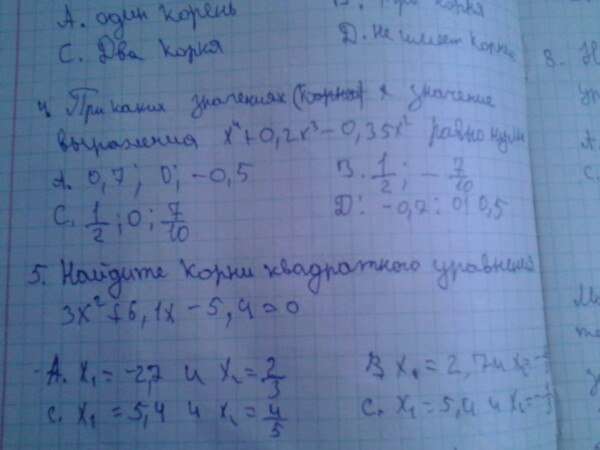 А. один корень
С. Два корня
D. не имеет корн
8.
4. При каких значениях х значение
выражения x⁴+0,2x³-0,35x² равно нулю
А. 0,7; 0; -0,5
B. 1/2; -7/10
С. 1/2; 0; 7/10
D: -0,7; 0; 0,5
5. Найдите корни квадратного уравнения
3x²+6,1x-5,4=0
А. x₁=-2,7 и x₂=2/3
B x₁=2,7 и x₂=-
С. x₁=5,4 и x₂=4/5
С. x₁=5,4 и x₂=-